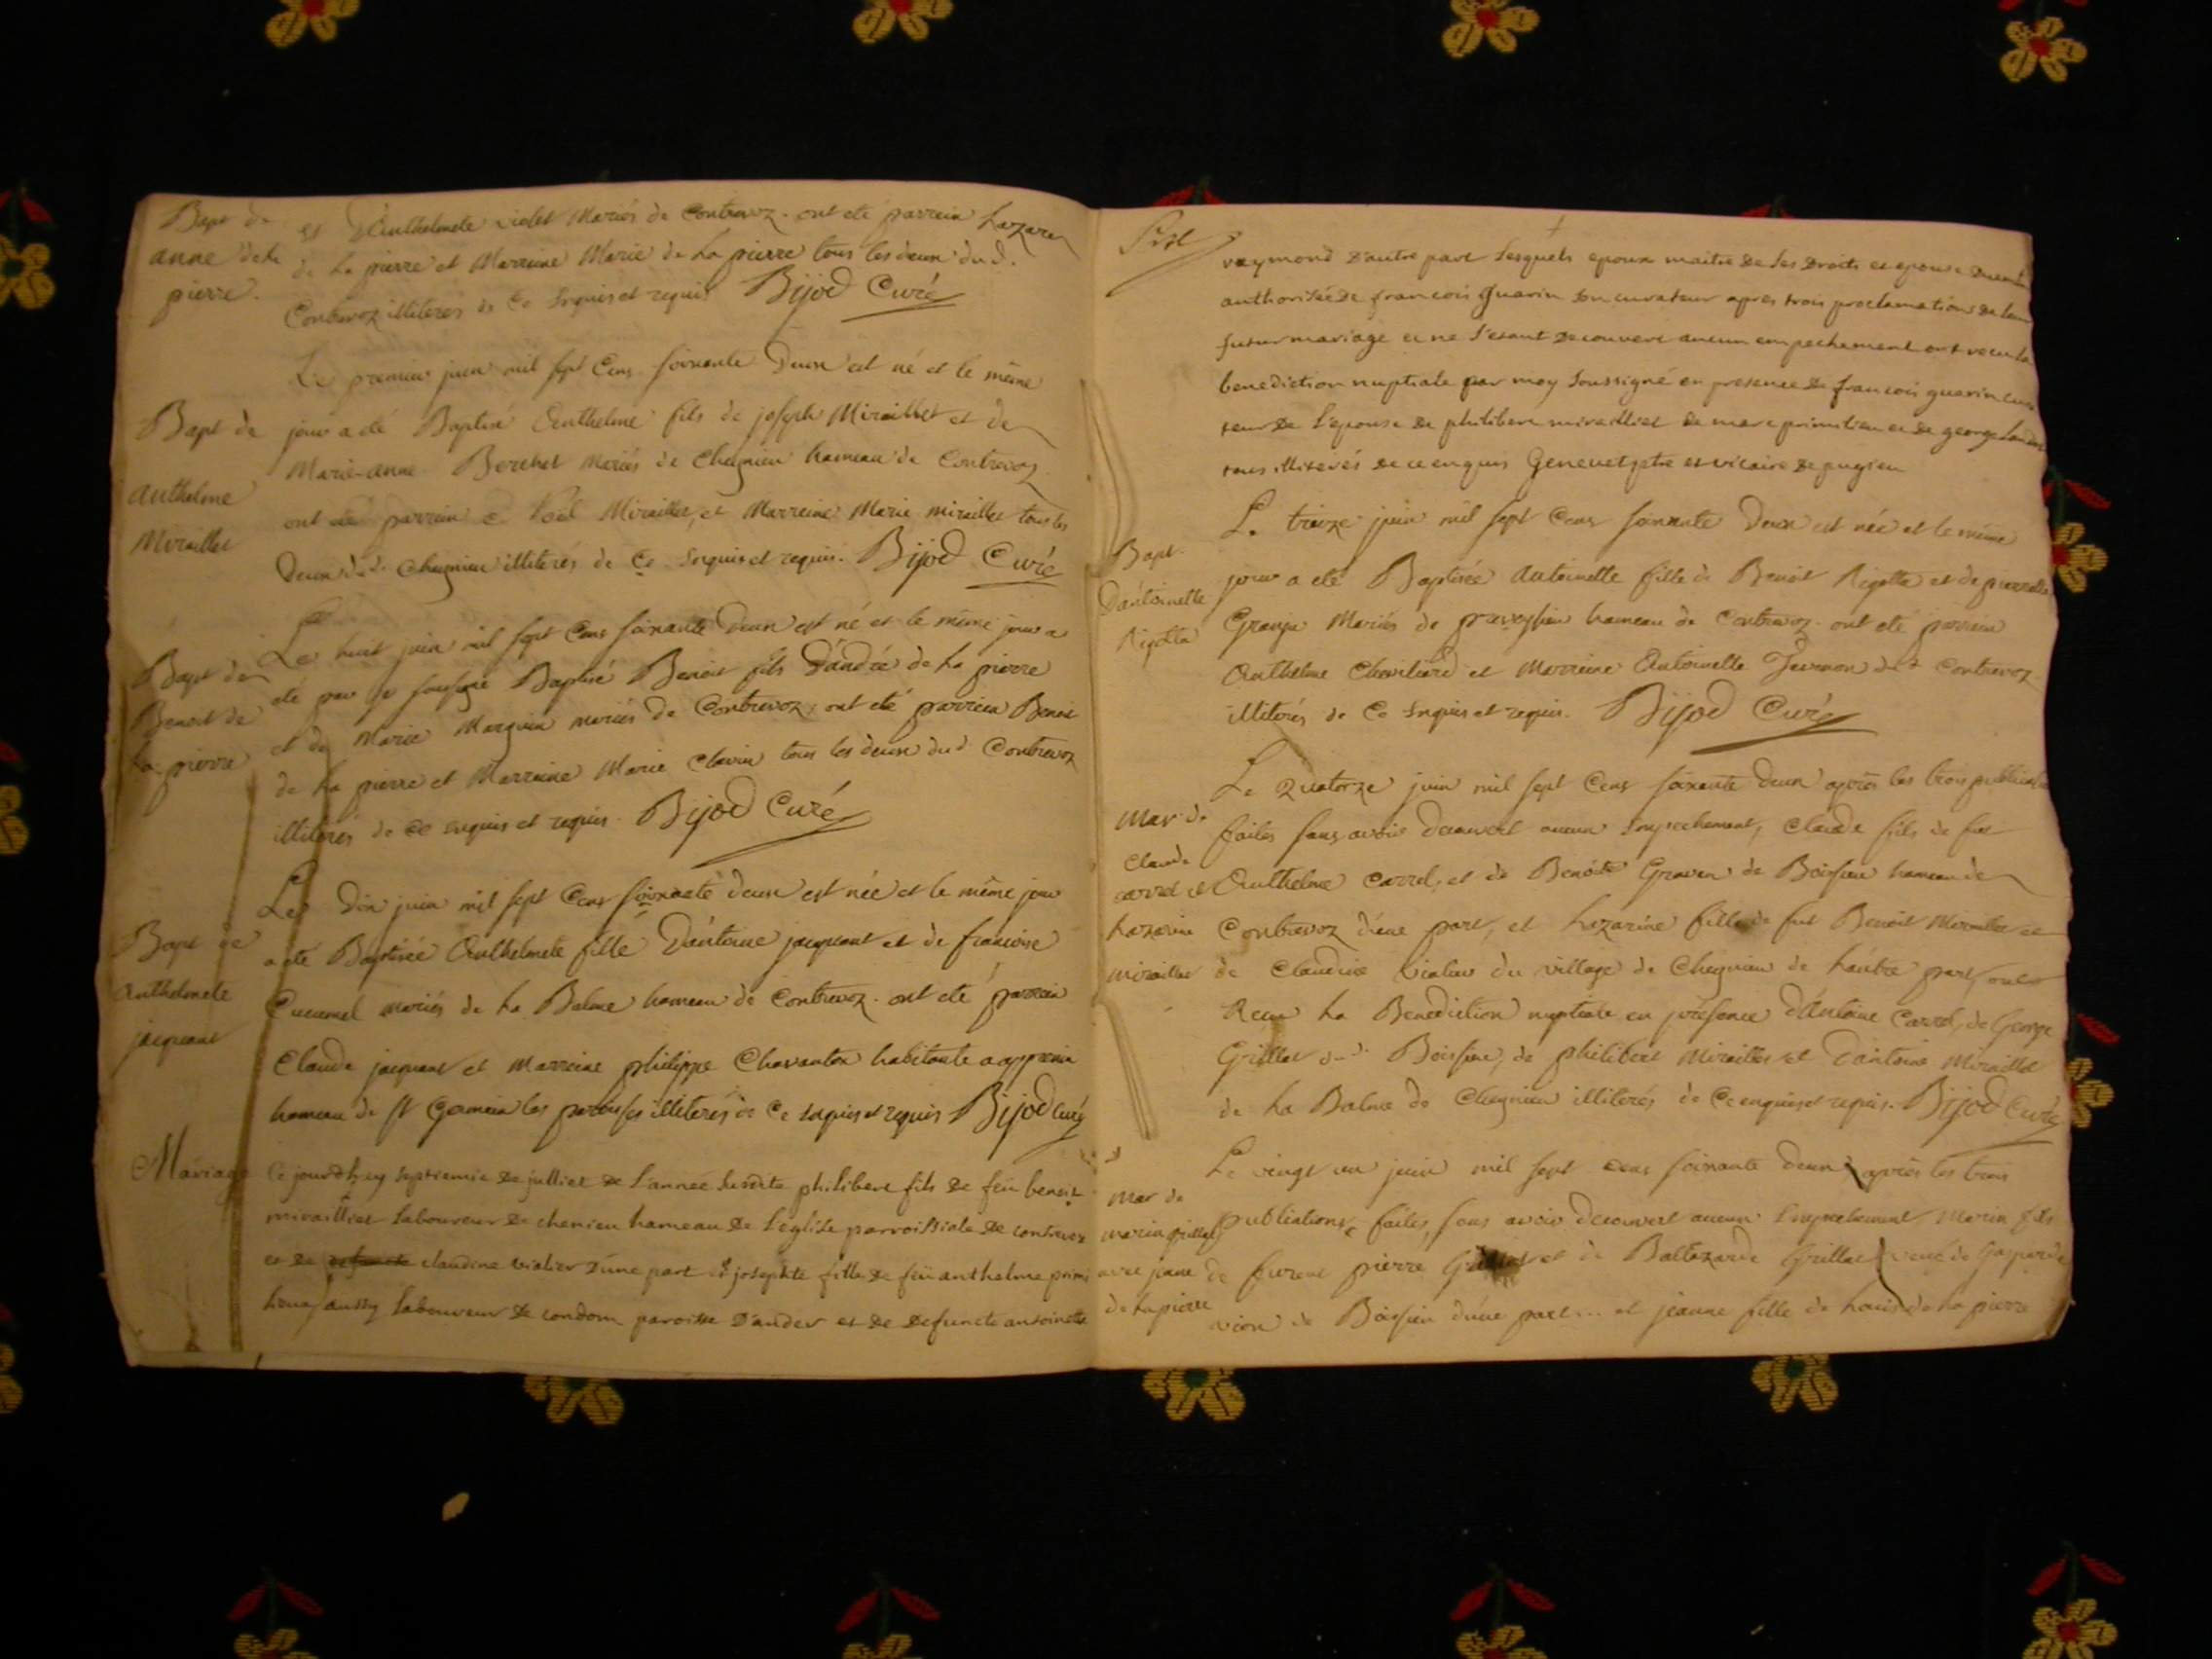 Bapt de
anne de la
pierre.
et d'Anthelmete violet Mariés de Contrevoz. ont eté parrein Lazare
de La pierre et Marreine Marie de La pierre tous les deux du d.
Contrevoz illiteres de Ce Enquis et requis Bijod Curé
Bapt de
Anthelme
Miraillet
Le premier juin mil sept Cens soixante Deux est né et le même
jour a eté Baptisé Anthelme fils de joseph Miraillet et de
Marie-anne Berthet Mariés de Cheignieu hameau de Contrevoz
ont été parrein Noël Miraillet, et Marreine Marie miraillet tous les
Deux du d. Cheignieu illiterés de Ce Enquis et requis. Bijod Curé
Bapt de
Benoit de
La pierre
Le huit juin mil sept Cens soixante Deux est né et le même jour a
eté par je soussigné Baptisé Benoit fils D'andré de La pierre
et de Marie Marquin mariés de Contrevoz, ont eté parrein Benoit
de La pierre et Marreine Marie Clavin tous les deux du d Contrevoz
illiterés de Ce enquis et requis. Bijod Curé
Bapt de
Anthelmete
jacquant
Le Dix juin mil sept Cens soixante deux est née et le même jour
a eté Baptisée Anthelmete fille D'antoine jacquant et de francoise
Cucumel mariés de La Balme hameau de Contrevoz. ont eté parrein
Claude jacquant et Marreine philippe Chavanton habitante a apprein
hameau de St Germain les paroisses illiterés de Ce enquis et requis Bijod curé
Mariage
Ce jourdhuy septiemie de julliet de l'année susdite philibert fils de feu benoit
miraillier laboureur de chenieu hameau de l'eglise parroissiale de contrevoz
et de claudine vialier d'une part et josephte fille de feu anthelme primi
aussy laboureur de condom paroisse d'ander et de defuncte antoinette
raymond d'autre part lesquels epoux maitre de ses droits et epouse
authorisée de francois guarin son curateur apres trois proclamations de leur
futur mariage et ne s'etant decouvert aucun empechement ont recu la
benediction nuptiale par moy soussigné en presence de francois guarin cura
teur de l'epouse de philibert miraillier de marc primitien et de george
tous illiterés de ce enquis Genevet ptre et vicaire de pugieu
Bapt.
D'antoinette
Rigotta
Le treize juin mil sept Cens soixante Deux est née et le même
jour a eté Baptisée Antoinette fille de Benoit Rigotta et de pierrette
Grange Mariés de preveyzieu hameau de Contrevoz. ont eté parrein
Anthelme Chevilliard et Marreine Antoinette du d Contrevoz
illiterés de Ce Enquis et requis. Bijod Curé
Mar. de
Claude
carrel et
Lazarine
miraillet
Le Quatorze juin mil sept Cens soixante Deux après les trois publications
faites sans avoir decouvert aucun Empechement, Claude fils de fut
Anthelme Carrel, et de Benoite Graven de Boissieu hameau de
Contrevoz d'une part, et Lazarine fille de fut Benoit Miraillet et
de Claudine Vialier du village de Cheignieu de L'autre part, ont
Recu La Benediction nuptiale en présence d'Antoine Carrel, de George
Grillet du d. Boissieu, de philibert Miraillet et D'antoine Miraillet
de La Balme de Cheignieu illiterés de Ce enquis et requis. Bijod Curé
Mar de
marin grillet
avec jeane
de La pierre
Le vingt un juin mil sept cens soixante deux après les trois
publications faites, sans avoir decouvert aucun Empechement Marin fils
de furent pierre Grillet et de Baltazarde Grillet veuf de Gasparde
vion de Boissieu d'une part... et jeanne fille de Louis de La pierre